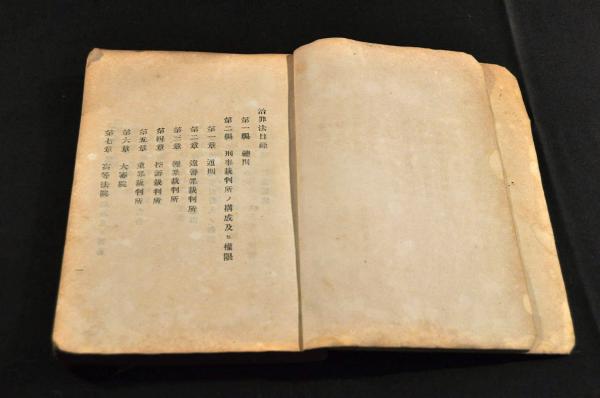 治罪法目錄
第一編 總則
第二編 刑事裁判所ノ構成及ヒ權限
第一章 通則
第二章 違警罪裁判所
第三章 輕罪裁判所
第四章 控訴裁判所
第五章 重罪裁判所
第六章 大審院
第七章 高等法院